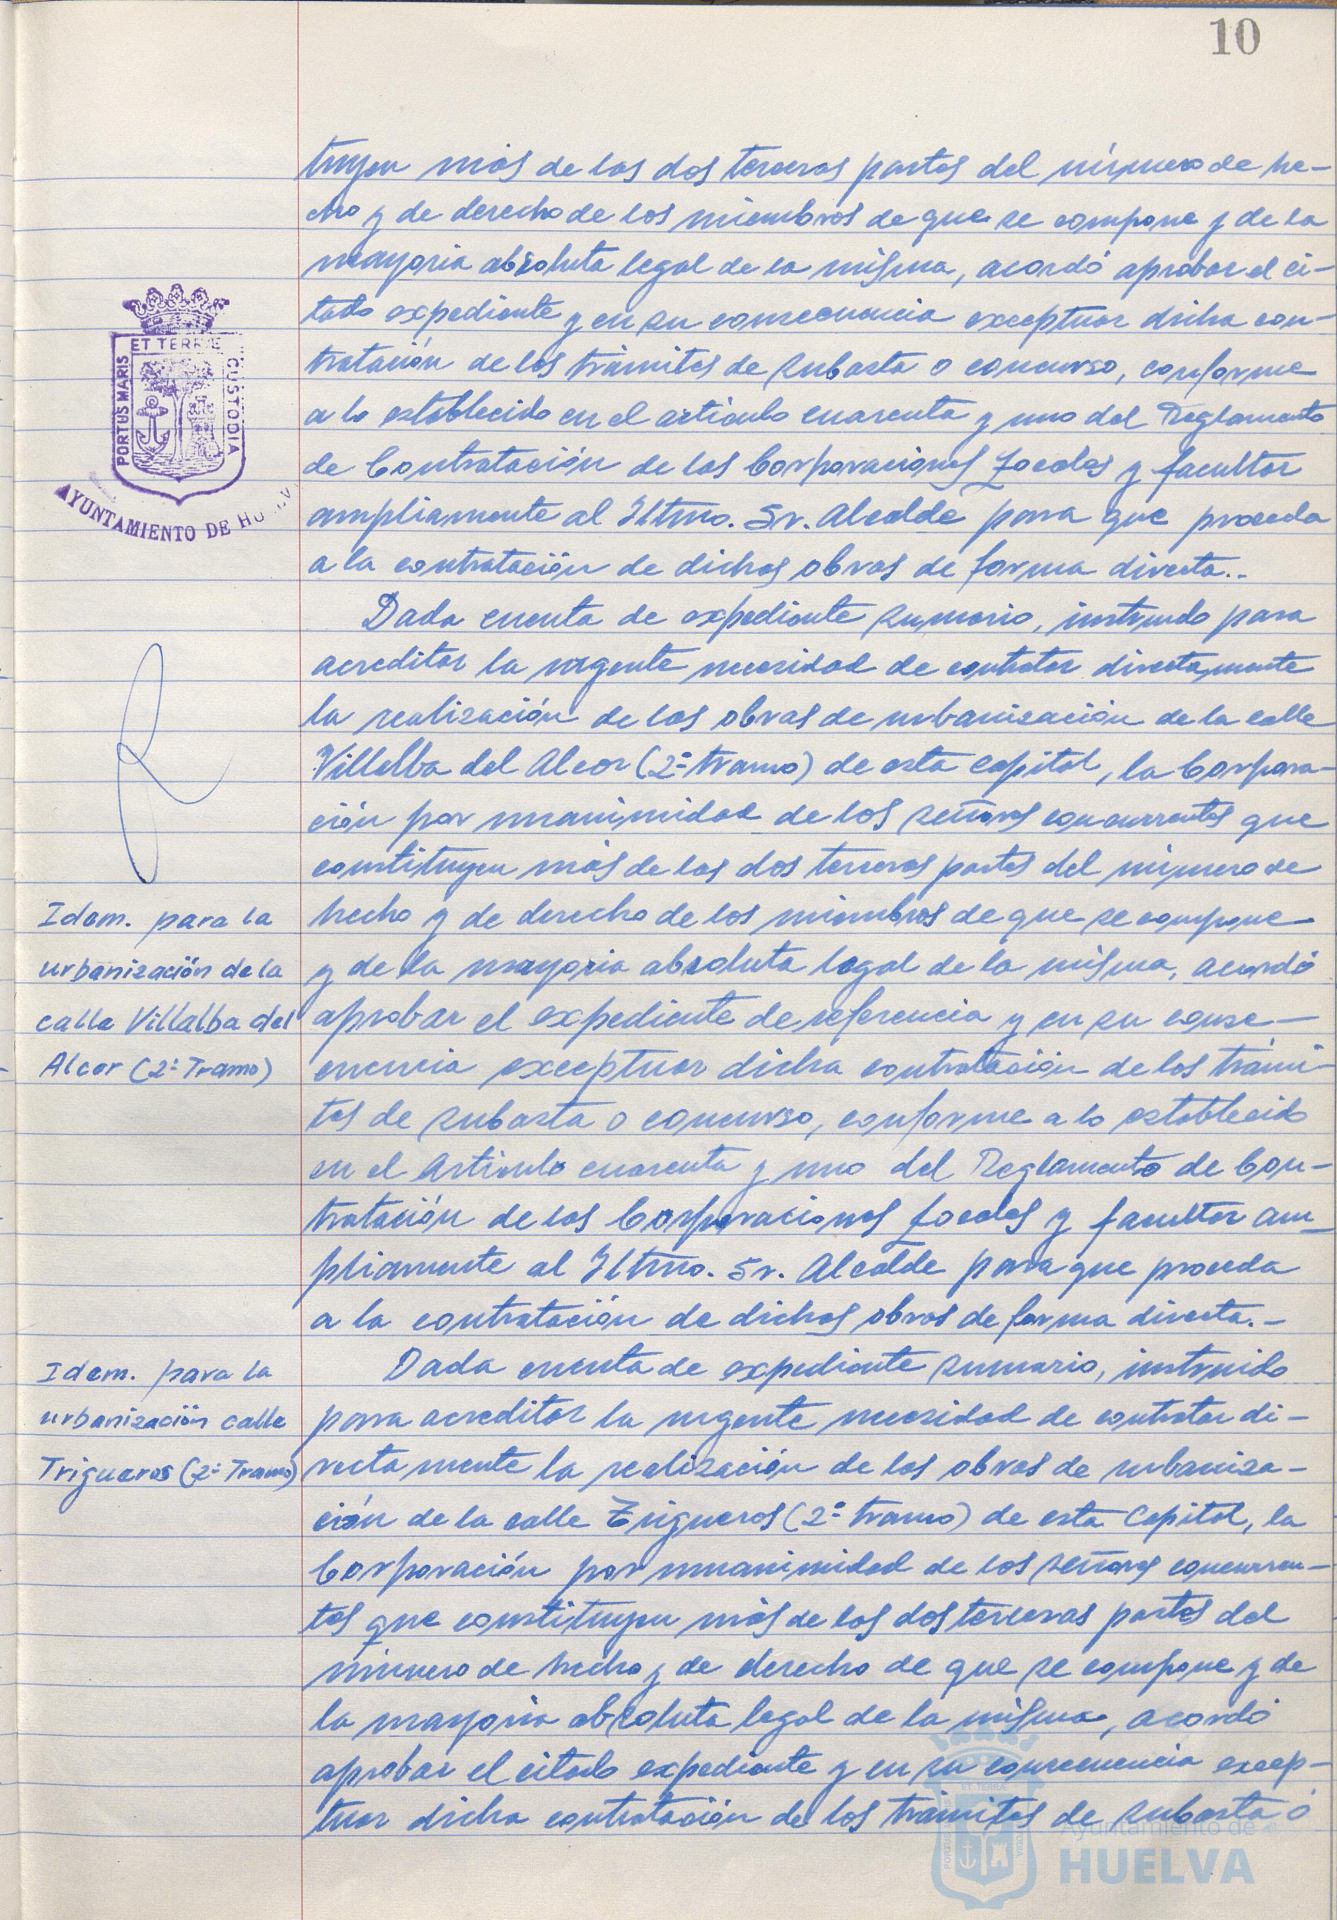 10
tuyen más de las dos terceras partes del número de he-
cho y de derecho de los miembros de que se compone y de la
mayoria absoluta legal de la misma, acordó aprobar el ci-
tado expediente y en su consecuencia exceptuar dicha con-
tratación de los trámites de subasta o concurso, conforme
a lo establecido en el artículo cuarenta y uno del Reglamento
de Contratación de las Corporaciones Locales y facultar
ampliamente al Iltmo. Sr. Alcalde para que proceda
a la contratación de dichas obras de forma directa..
ET TERRÆ
PORTUS MARIS
CUSTODIA
AYUNTAMIENTO DE HUELV
Dada cuenta de expediente sumario, instruido para
acreditar la urgente necesidad de contratar directamente
la realización de las obras de urbanización de la calle
Villalba del Alcor (2º tramo) de esta capital, la Corpora-
ción por unanimidad de los señores concurrentes que
constituyen más de las dos terceras partes del número de
Idem. para la
urbanización de la
calle Villalba del
Alcor (2º Tramo)
hecho y de derecho de los miembros de que se compone
y de la mayoria absoluta legal de la misma, acordó
aprobar el expediente de referencia y en su conse-
cuencia exceptuar dicha contratación de los trámi-
tes de subasta o concurso, conforme a lo establecido
en el Artículo cuarenta y uno del Reglamento de Con-
tratación de las Corporaciones Locales y facultar am-
pliamente al Iltmo. Sr. Alcalde para que proceda
a la contratación de dichas obras de forma directa.-
Idem. para la
urbanización calle
Trigueros (2º Tramo)
Dada cuenta de expediente sumario, instruido
para acreditar la urgente necesidad de contratar di-
rectamente la realización de las obras de urbaniza-
ción de la calle Trigueros (2º tramo) de esta Capital, la
Corporación por unanimidad de los señores concurren-
tes que constituyen más de las dos terceras partes del
número de hecho y de derecho de que se compone y de
la mayoria absoluta legal de la misma, acordó
aprobar el citado expediente y en su consecuencia excep-
tuar dicha contratación de los trámites de subasta ó
Ayuntamiento de
HUELVA